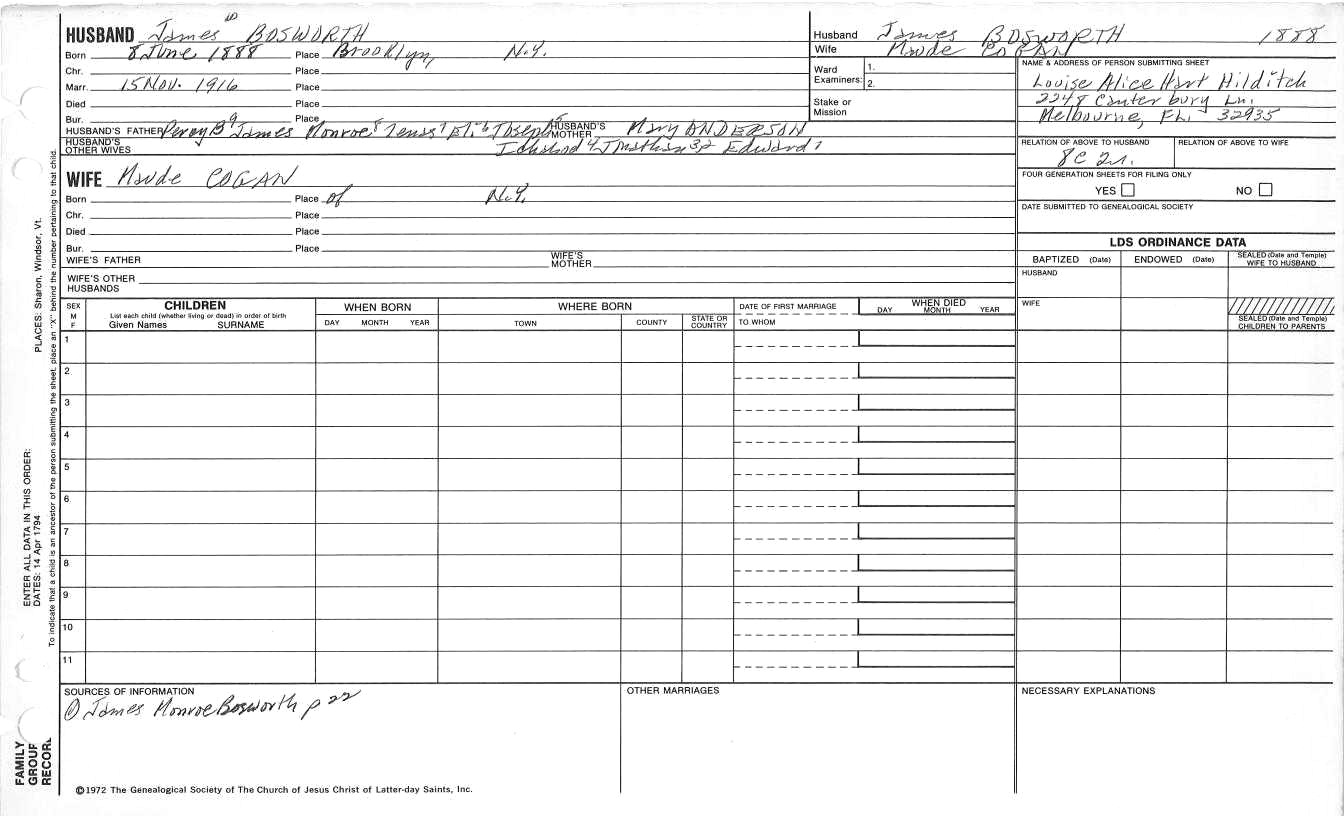 HUSBAND James 10 BOSWORTH
Born 8 June 1888 Place Brooklyn, N.Y.
Chr. Place
Marr. 15 Nov. 1916 Place
Died Place
Bur. Place
HUSBAND'S FATHER Percy B 9 James Monroe 8 7 Eli 6 Joseph 5 HUSBAND'S MOTHER Mary ANDERSON
HUSBAND'S OTHER WIVES Ichabod 4 Jonathan 32 Edward 1
Husband James BOSWORTH 1888
Wife Maude COGAN
Ward Examiners: 1.
2.
Stake or Mission
NAME & ADDRESS OF PERSON SUBMITTING SHEET
Louise Alice Hart Hilditch
2248 Canterbury Ln.
Melbourne, FL. 32935
RELATION OF ABOVE TO HUSBAND RELATION OF ABOVE TO WIFE
8C 2r.
FOUR GENERATION SHEETS FOR FILING ONLY
YES NO
DATE SUBMITTED TO GENEALOGICAL SOCIETY
WIFE Maude COGAN
Born Place of N.Y.
Chr. Place
Died Place
Bur. Place
WIFE'S FATHER WIFE'S MOTHER
WIFE'S OTHER HUSBANDS
LDS ORDINANCE DATA
BAPTIZED (Date) ENDOWED (Date) SEALED (Date and Temple) WIFE TO HUSBAND
HUSBAND
WIFE
SEALED (Date and Temple) CHILDREN TO PARENTS
SEX M F
CHILDREN
List each child (whether living or dead) in order of birth
Given Names SURNAME
WHEN BORN
DAY MONTH YEAR
WHERE BORN
TOWN COUNTY STATE OR COUNTRY
DATE OF FIRST MARRIAGE
TO WHOM
WHEN DIED
DAY MONTH YEAR
1
2
3
4
5
6
7
8
9
10
11
SOURCES OF INFORMATION
① James Monroe Bosworth p 22
OTHER MARRIAGES
NECESSARY EXPLANATIONS
©1972 The Genealogical Society of The Church of Jesus Christ of Latter-day Saints, Inc.
FAMILY GROUP RECORD
ENTER ALL DATA IN THIS ORDER:
DATES: 14 Apr 1794
PLACES: Sharon, Windsor, Vt.
To indicate that a child is an ancestor of the person submitting the sheet, place an "X" behind the number pertaining to that child.